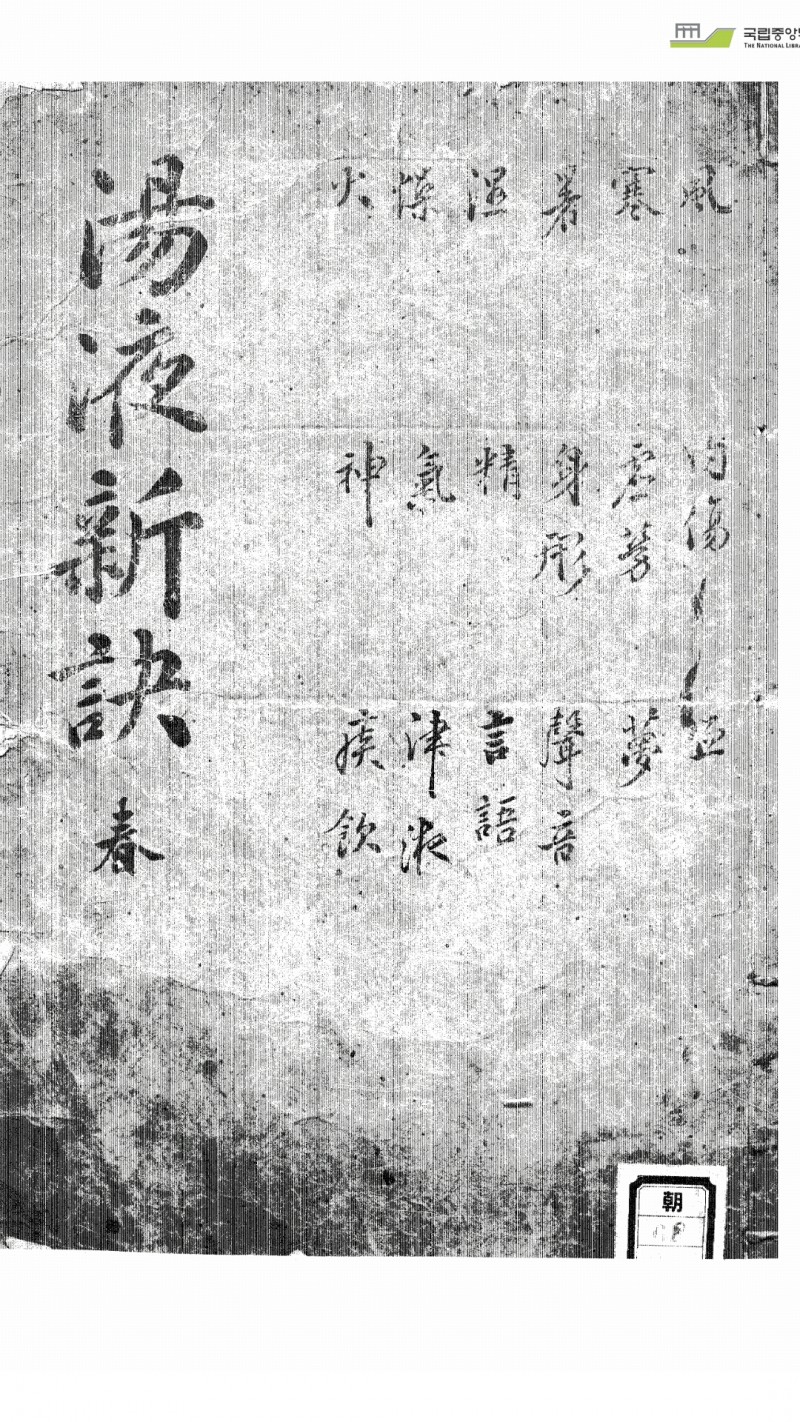 국립중앙
THE NATIONAL LIBRA
風
寒
暑
濕
燥
火
內傷
虛勞
身形
精
氣
神
血
夢
聲音
言語
津液
痰飮
湯液新訣 春
朝